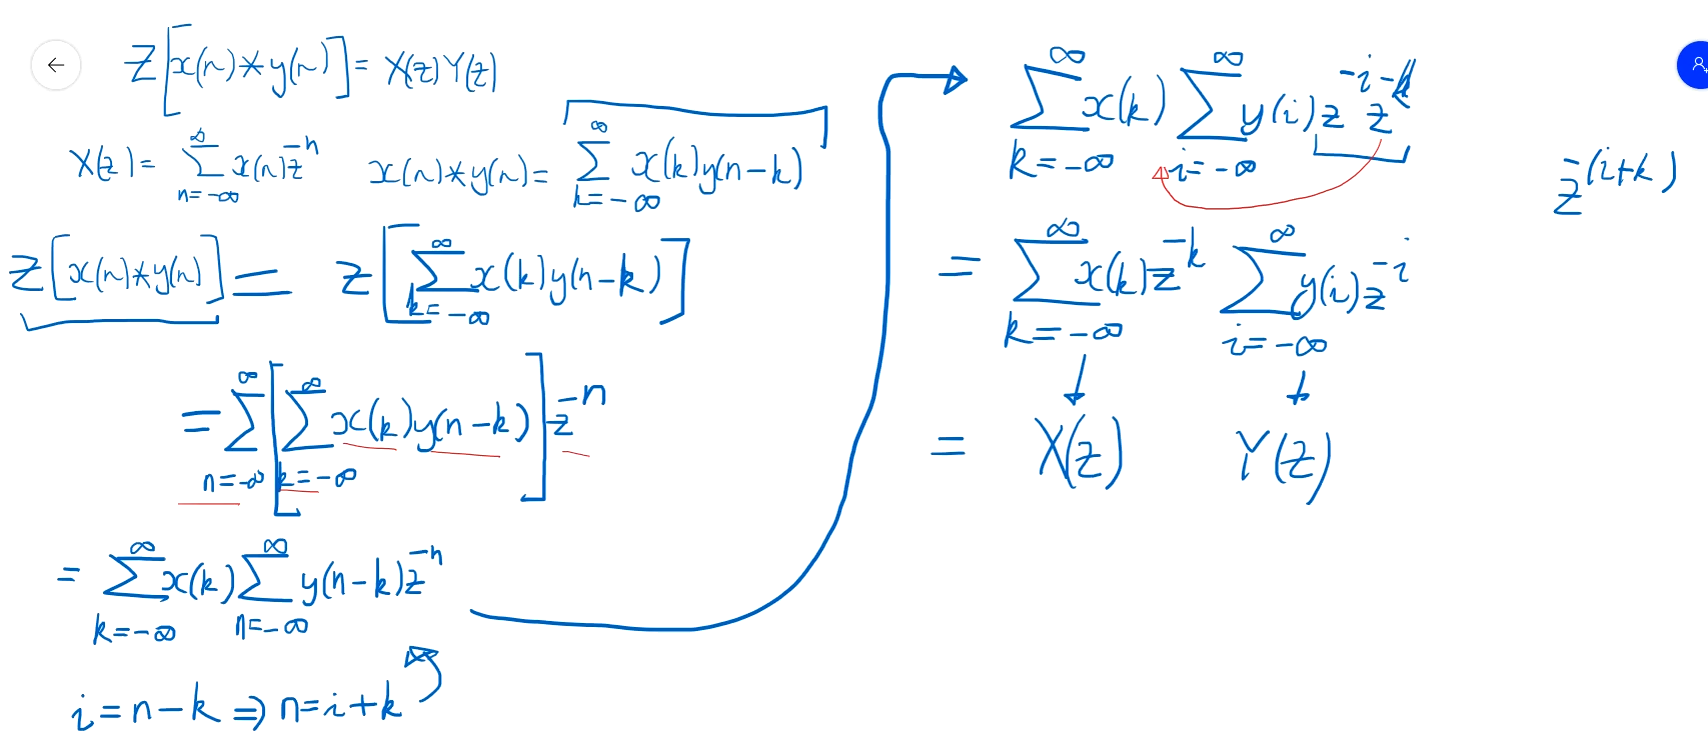 Z[x(n)*y(n)] = X(z)Y(z)
X(z) = ∑_{n=-∞}^{∞} x(n)z^{-n}
x(n)*y(n) = ∑_{k=-∞}^{∞} x(k)y(n-k)
Z[x(n)*y(n)] = z[∑_{k=-∞}^{∞} x(k)y(n-k)]
= ∑_{n=-∞}^{∞} [∑_{k=-∞}^{∞} x(k)y(n-k)] z^{-n}
= ∑_{k=-∞}^{∞} x(k) ∑_{n=-∞}^{∞} y(n-k)z^{-n}
i = n-k ⇒ n = i+k
∑_{k=-∞}^{∞} x(k) ∑_{i=-∞}^{∞} y(i)z^{-i}z^{-k}
z^{-(i+k)}
= ∑_{k=-∞}^{∞} x(k)z^{-k} ∑_{i=-∞}^{∞} y(i)z^{-i}
= X(z) Y(z)